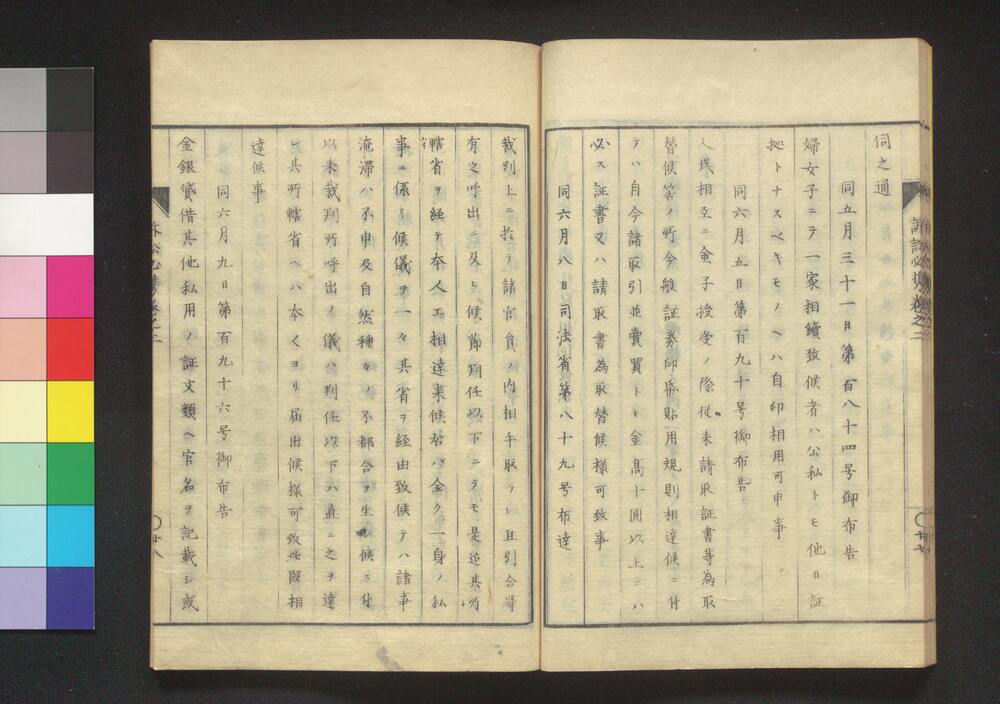 伺之通
同五月三十一日第百八十四号御布告
婦女子ニテ一家相續致候者ハ公私トモ他日証
拠トナスベキモノヘハ自印相用可申事
同六月五日第百九十号御布告
人民相互ニ金子授受ノ際従来請取証書等為取
替候筈ノ所今般証券印紙貼用規則相達候ニ付
テハ自今諸取引並賣買トモ金高十圓以上ニハ
必ス証書又ハ請取書為取替候様可致事
同六月八日司法省第八十九号布達
裁判上ニ於テ諸官員ノ内相手取ラレ且引合等
有之呼出ニ及ヒ候節判任以下ニテモ是迄其所
轄省ヲ経テ本人エ相達来候右ハ全ク一身ノ私
事ニ係リ候儀ヲ一々其省ヲ経由致候テハ諸事
淹滞ハ不申及自然種々ノ不都合ヲ生シ候ニ付
以来裁判所呼出ノ儀ハ判任以下ハ直ニ之ヲ達
シ其所轄省ヘハ本人ヨリ届出候様可致此段相
達候事
同六月九日第百九十六号御布告
金銀貸借其他私用ノ証文類ヘ官名ヲ記載シ或
訴訟必携卷之二
〇廿七
訴訟必携卷之二
〇廿八